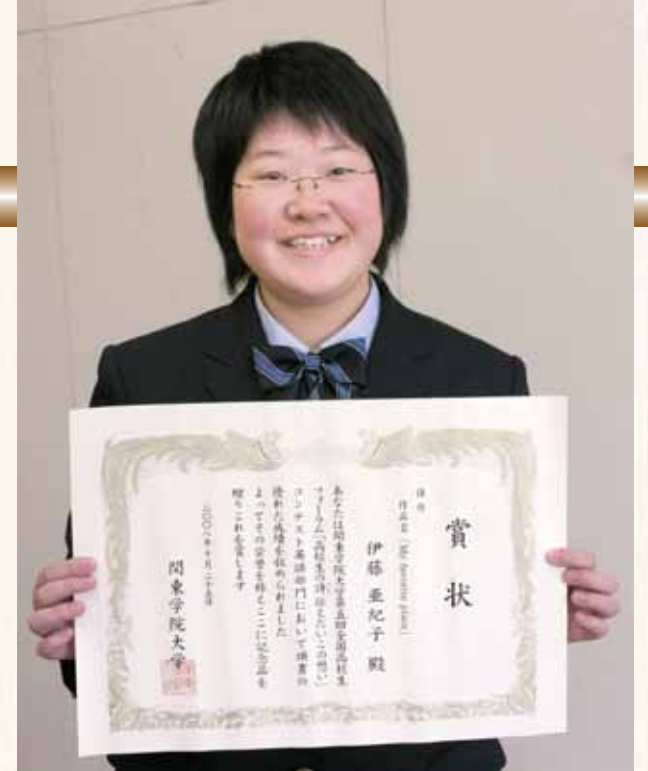 賞状
佳作
作品名「My favorite place」
伊藤 亜紀子 殿
あなたは関東学院大学第五回全国高校生
フォーラム「高校生の詩 伝えたいこの想い」
コンテスト英語部門において頭書の
優れた成績を収められました
よってその栄誉を称えここに記念品を
贈りこれを賞します
二〇〇八年十月二十五日
関東学院大学